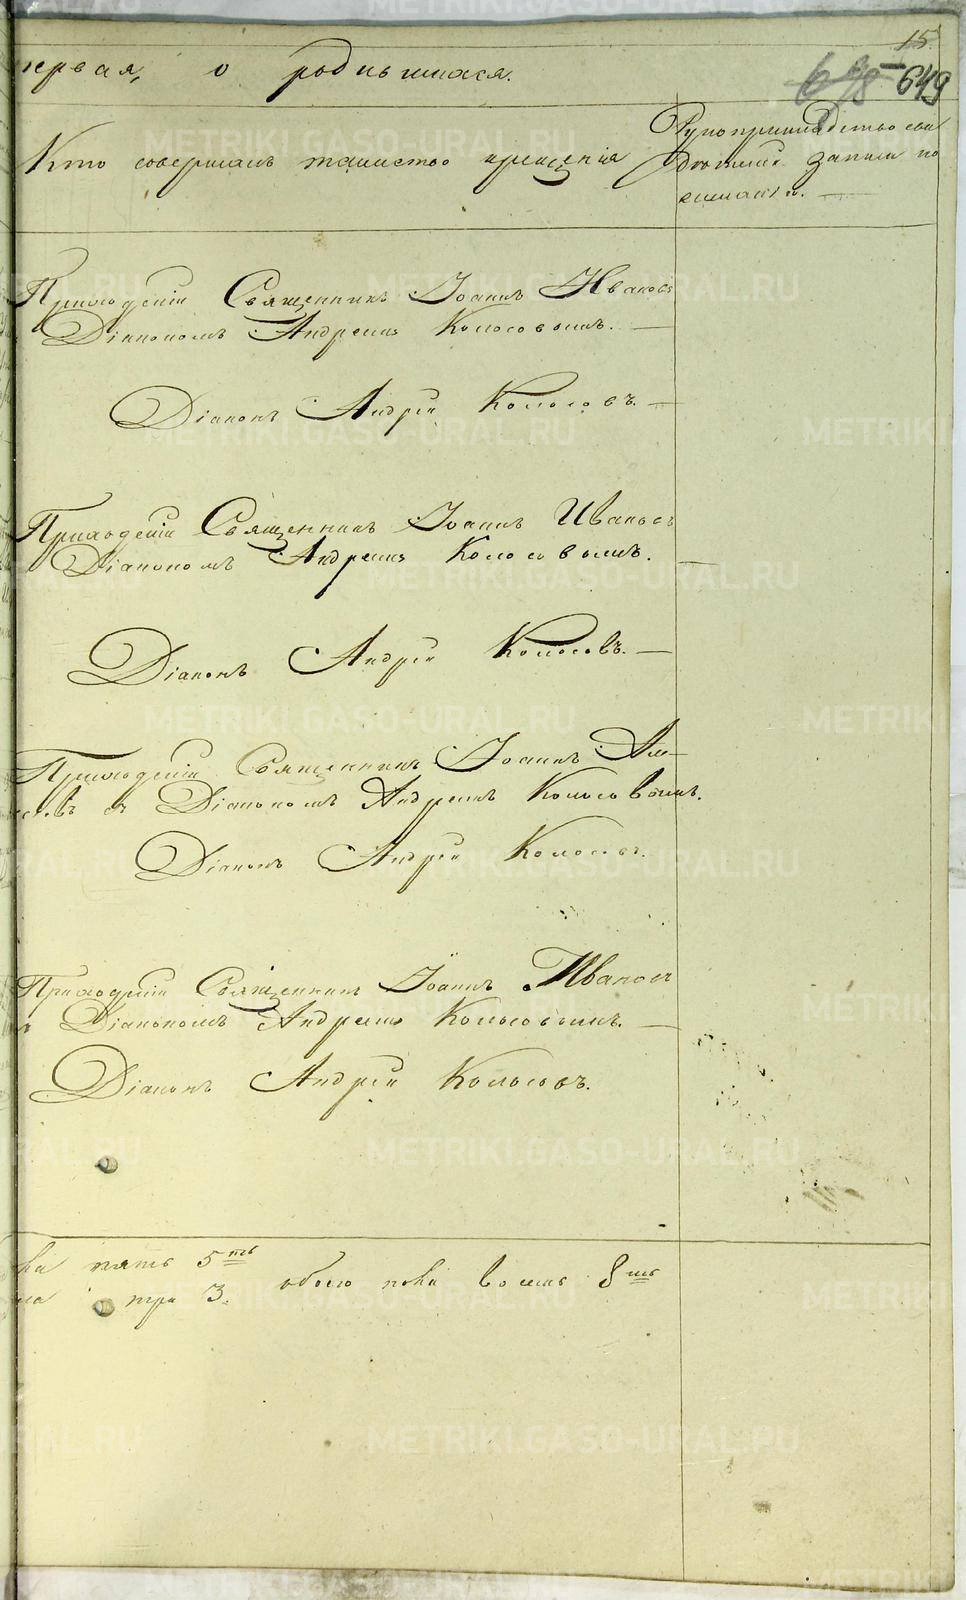 15.
первая, о родившихся.
649
Кто совершалъ таинство крещенія
Рукоприкладство сви
дѣтелей записи по
желанію.
Приходскій Священникъ Іоаннъ Ивановъ
Діакономъ Андреемъ Колосовымъ.
Діаконъ Андрей Колосовъ.
Приходскій Священникъ Іоаннъ Ивановъ
Діакономъ Андреемъ Колосовымъ.
Діаконъ Андрей Колосовъ.
Приходскій Священникъ Іоаннъ
съ Діакономъ Андреемъ Колосовымъ.
Діаконъ Андрей Колосовъ.
Приходскій Священникъ Іоаннъ Ивановъ
Діакономъ Андреемъ Колосовымъ.
Діаконъ Андрей Колосовъ.
пять 5ть
три 3. обоего пола восемь 8мь
METRIKI.GASO-URAL.RU